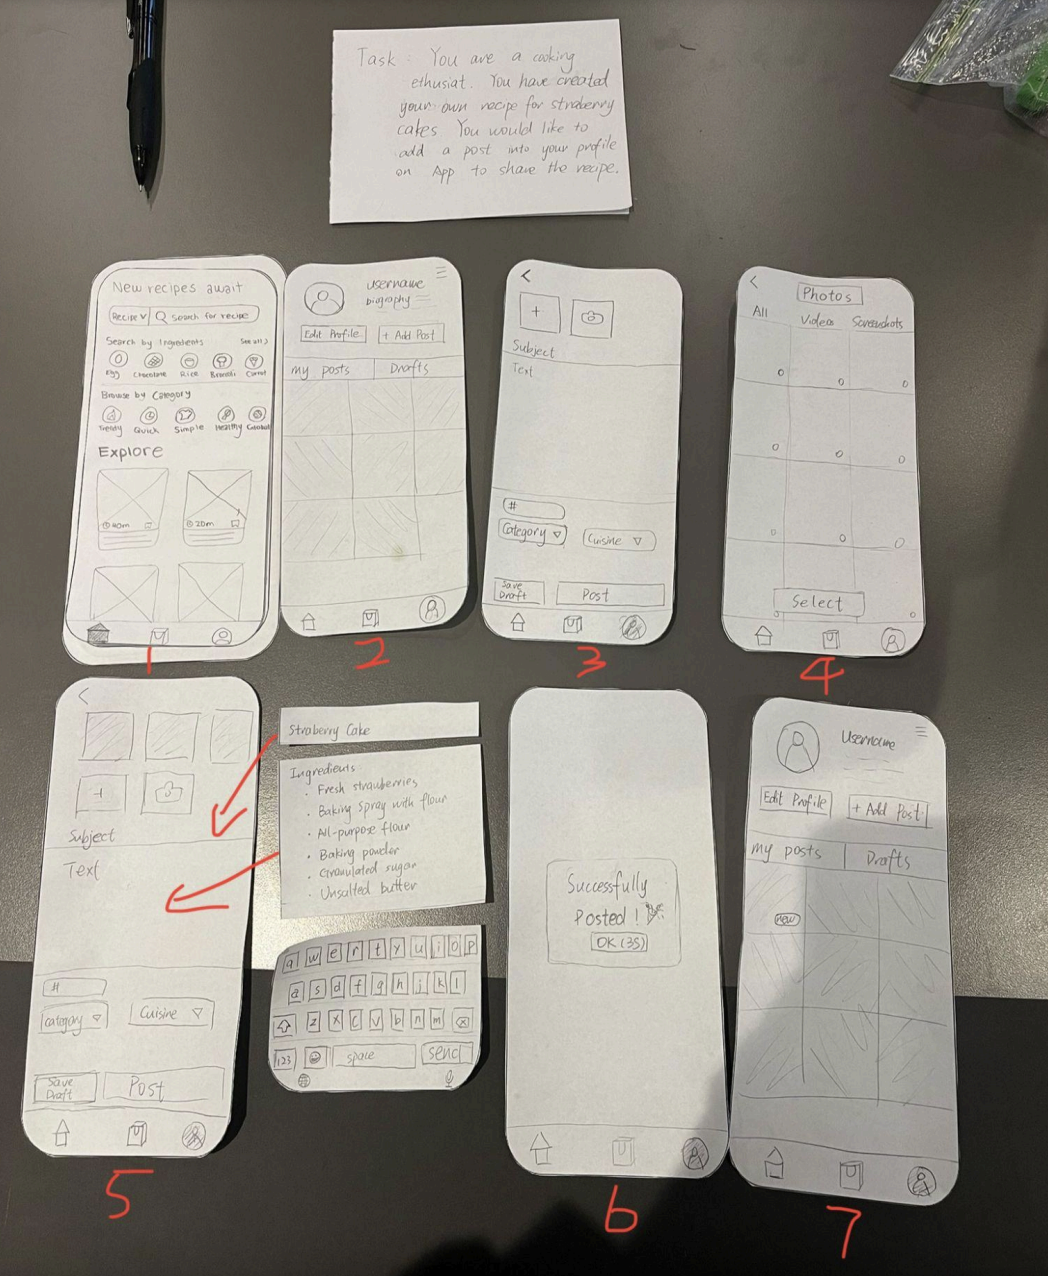 Task : You are a cooking
ethusiat. You have created
your own recipe for straberry
cakes. You would like to
add a post into your profile
on App to share the recipe.
New recipes await
Recipe
Search for recipe
Search by Ingredients
See all >
Egg
Chocolate
Rice
Carrot
Browse by Category
Trendy
Quick
Simple
Healthy
Global
Explore
40m
20m
1
username
biography
Edit Profile
+ Add Post
my posts
Drafts
2
<
+
Subject
Text
#
Category
Cuisine
Save
Draft
Post
3
<
Photos
All
Videos
Screenshots
Select
4
<
+
Subject
Text
#
category
Cuisine
Save
Draft
Post
5
Straberry Cake
Ingredients:
· Fresh strawberries
· Baking Spray with flour
· All-purpose flour
· Baking powder
· Granulated sugar
· Unsalted butter
q w e r t y u i o p
a s d f g h j k l
z x c v b n m
123
space
send
Successfully
Posted !
OK (3S)
6
Username
Edit Profile
+ Add Post
my posts
Drafts
new
7